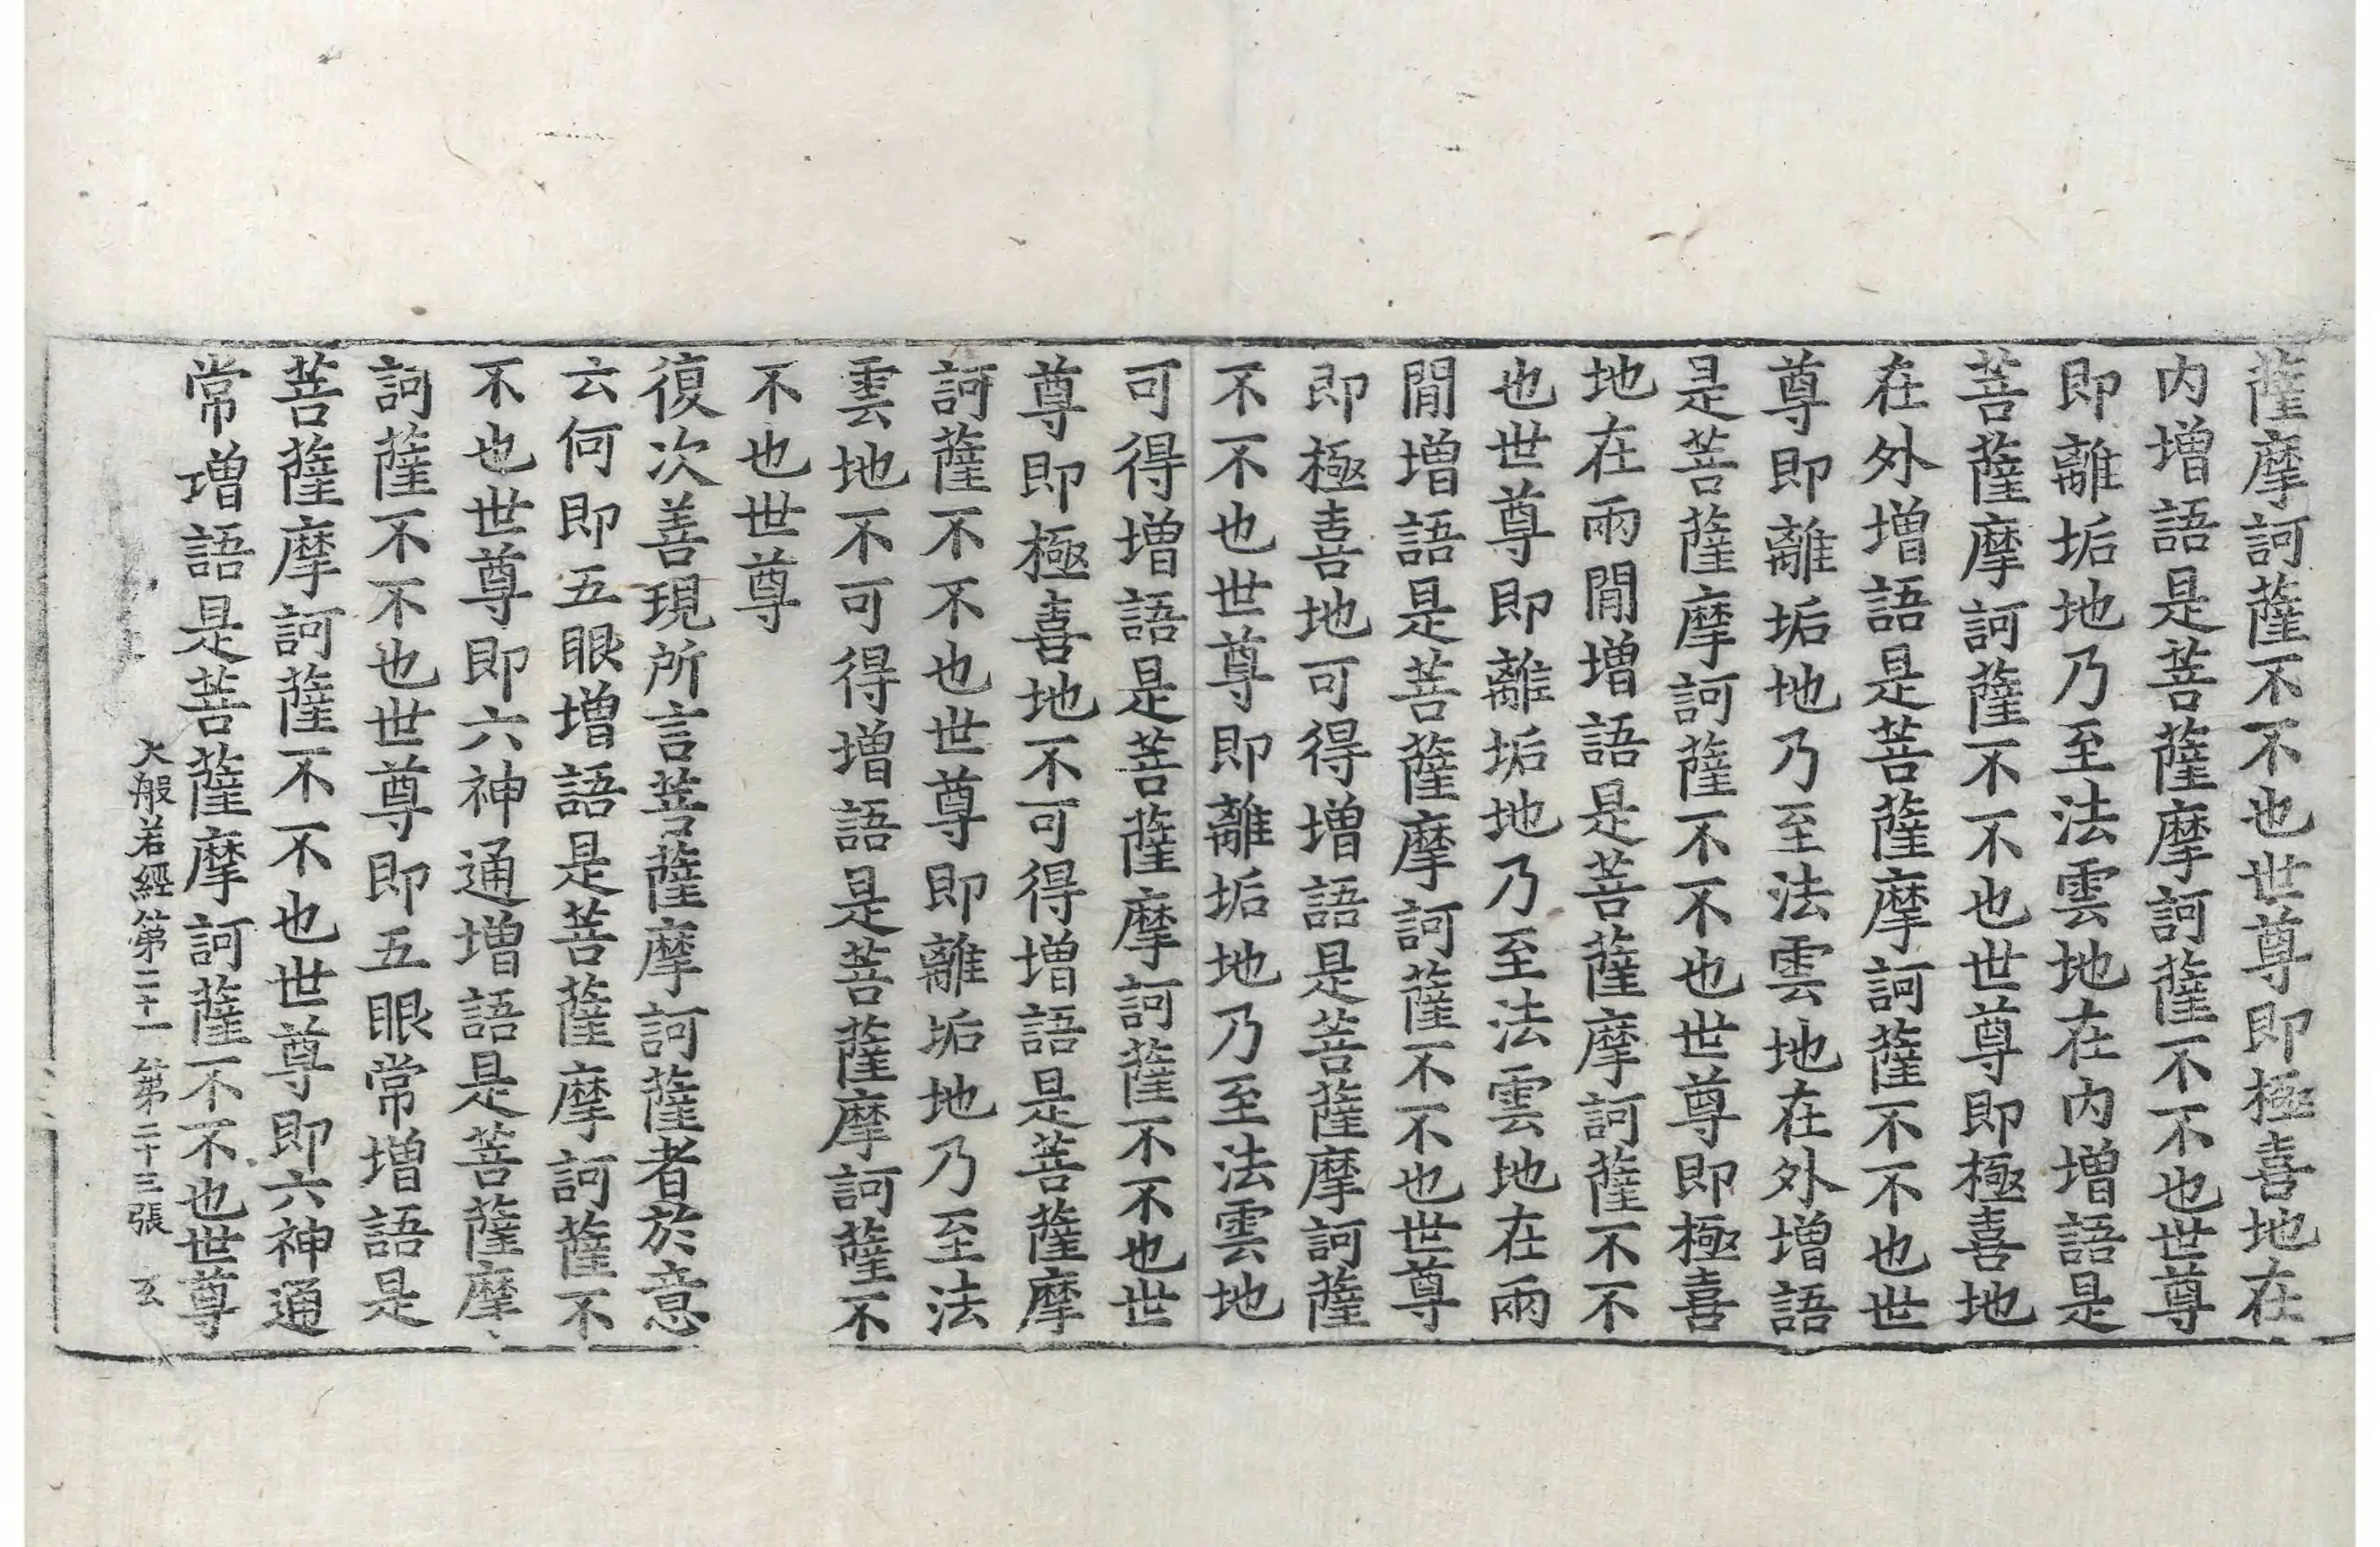 薩摩訶薩不不也世尊即極喜地在
内增語是菩薩摩訶薩不不也世尊
即離垢地乃至法雲地在内增語是
菩薩摩訶薩不不也世尊即極喜地
在外增語是菩薩摩訶薩不不也世
尊即離垢地乃至法雲地在外增語
是菩薩摩訶薩不不也世尊即極喜
地在兩閒增語是菩薩摩訶薩不不
也世尊即離垢地乃至法雲地在兩
閒增語是菩薩摩訶薩不不也世尊
即極喜地可得增語是菩薩摩訶薩
不不也世尊即離垢地乃至法雲地
可得增語是菩薩摩訶薩不不也世
尊即極喜地不可得增語是菩薩摩
訶薩不不也世尊即離垢地乃至法
雲地不可得增語是菩薩摩訶薩不
不也世尊
復次善現所言菩薩摩訶薩者於意
云何即五眼增語是菩薩摩訶薩不
不也世尊即六神通增語是菩薩摩
訶薩不不也世尊即五眼常增語是
菩薩摩訶薩不不也世尊即六神通
常增語是菩薩摩訶薩不不也世尊
大般若經第二十一 第二十三張 玄